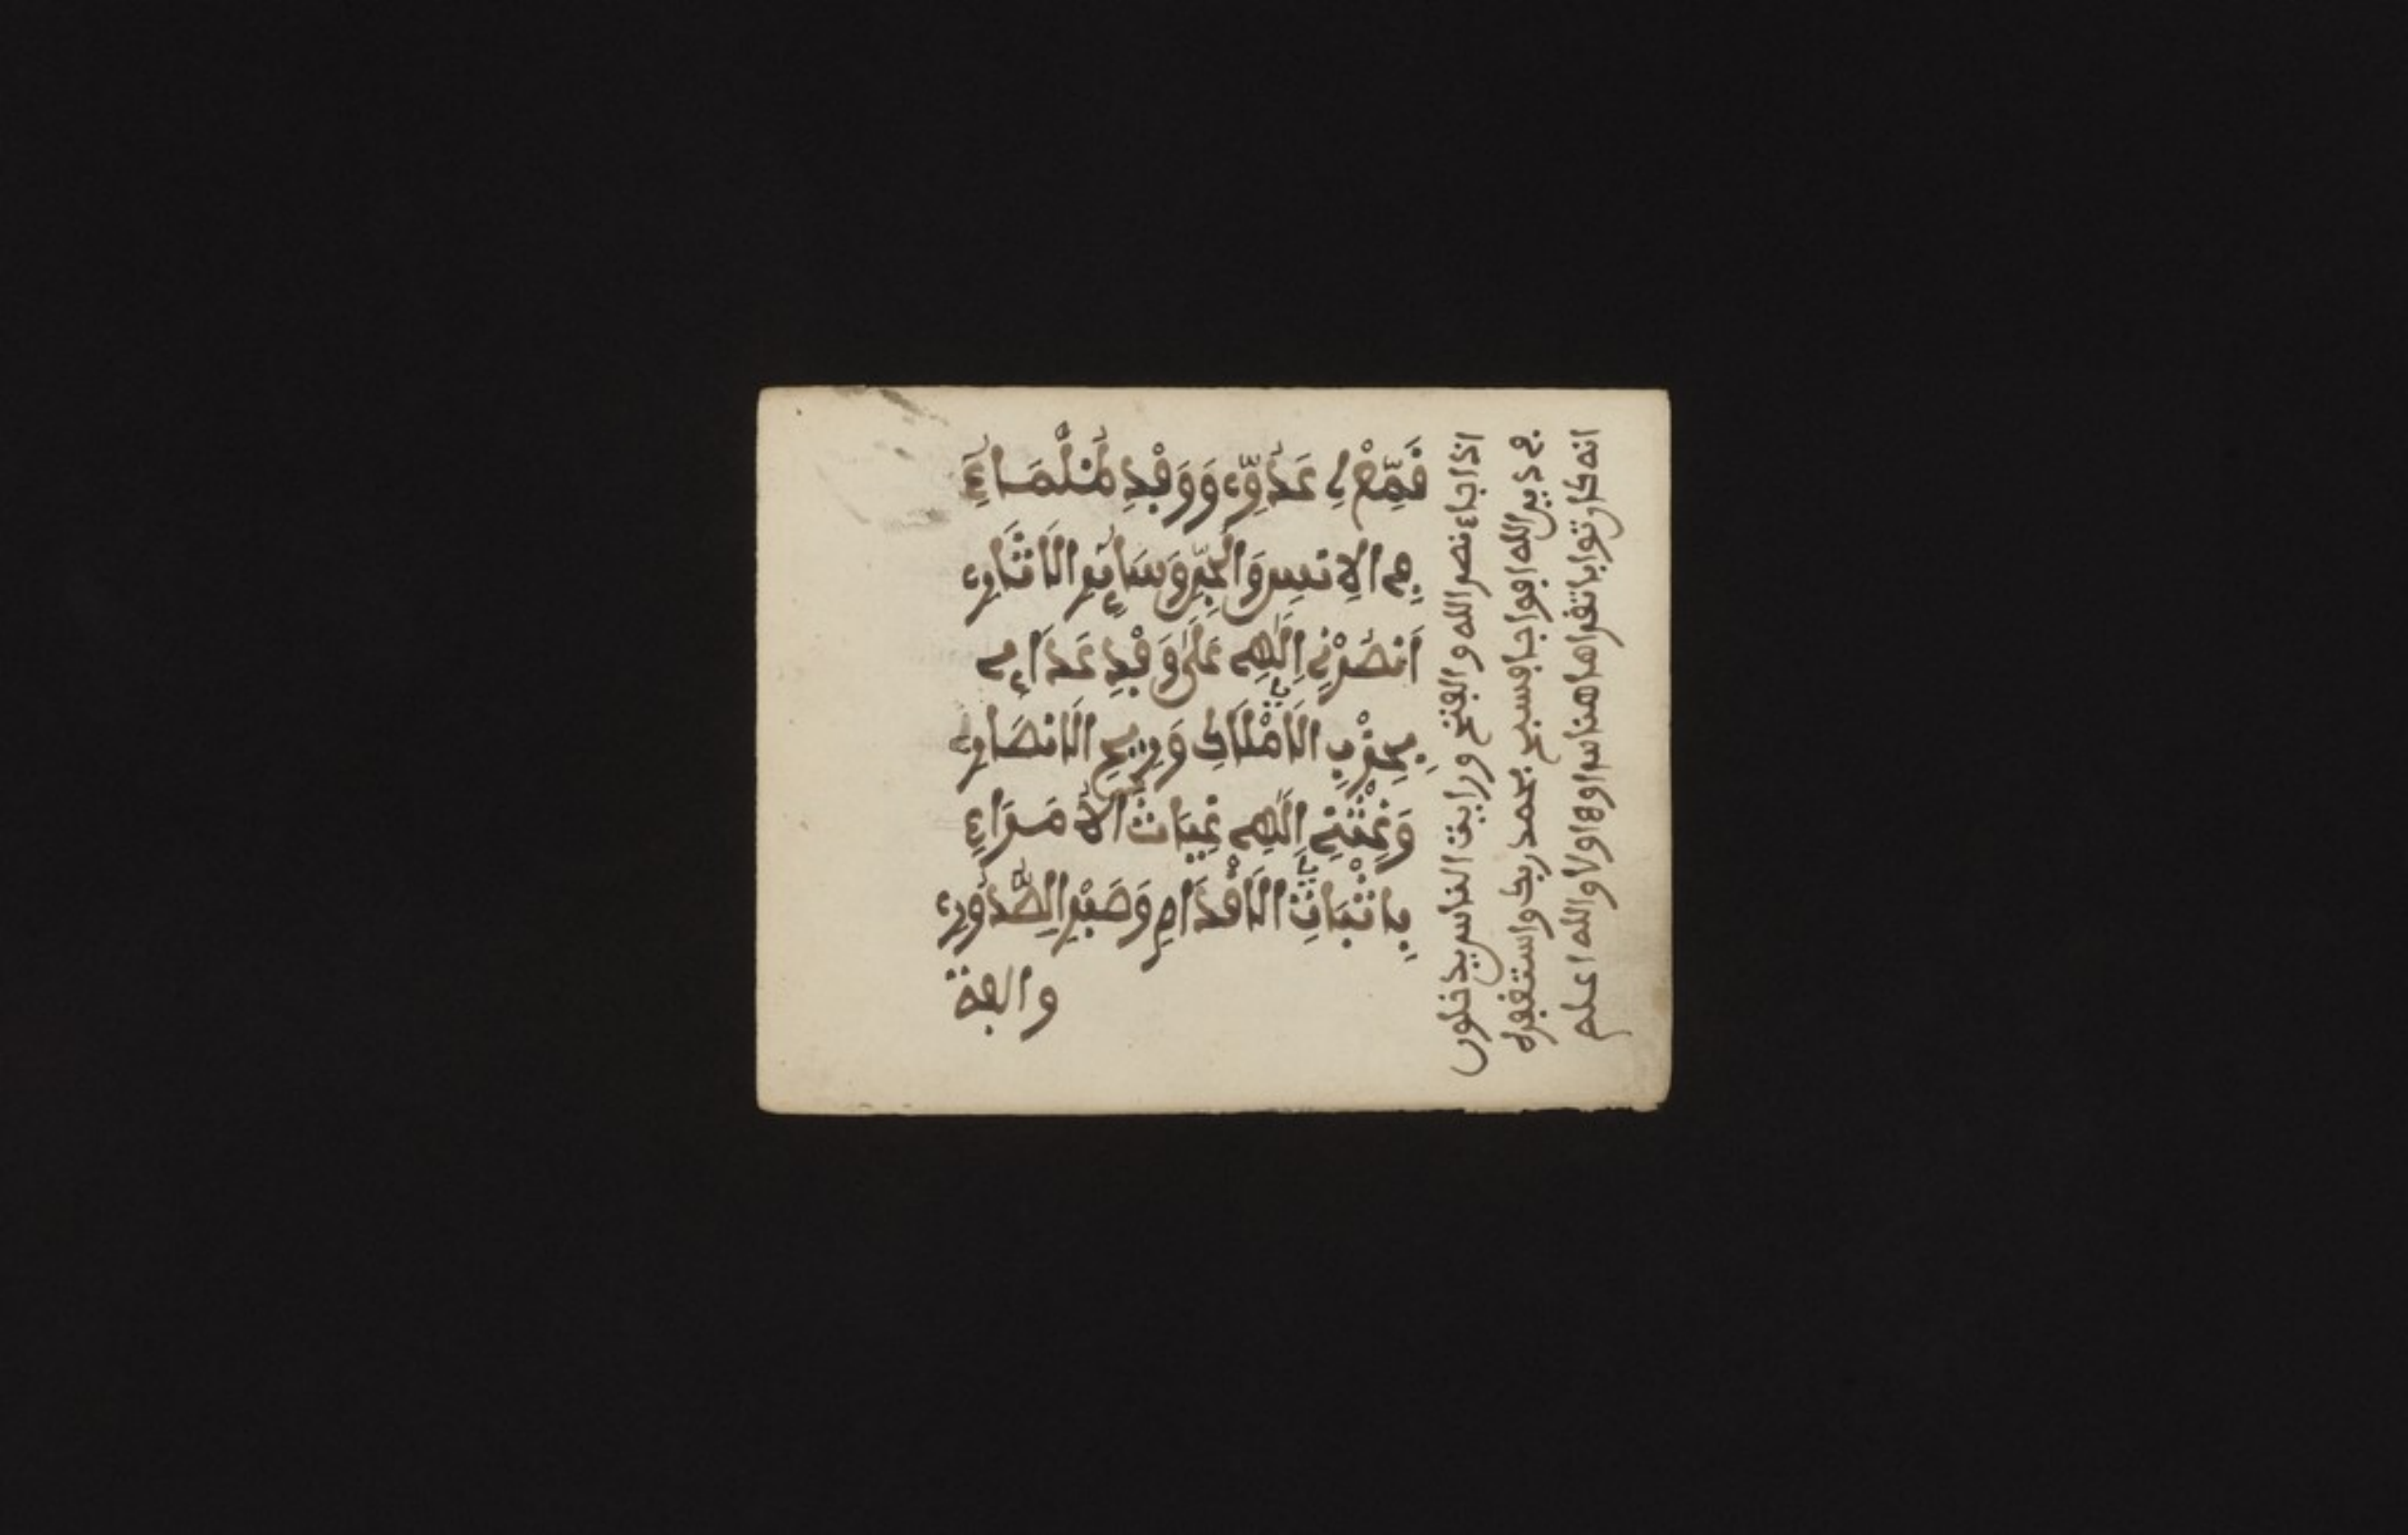 فَمِّعْ لِ عَدُوِّے وَوَفْدِ لُمْلَّمَاءِ
مِے الِانسِ وَالْجِنِّ وَسَائِرِ الَاثَارِے
اَنصُرْنِے اِلَهِے عَلَى وَفْدِ عَدَاءِے
بِحِزْبِ الَامْلَاكِ وَرِيحِ الَانصَارِے
وَغِثْنِے اِلَهِے غِيَاثَ الُامَرَاءِ
بِاثْبَاتِ الَاقْدَامِ وَصَبْرِ الصُّدُورِے
والفتة
اذا جاء نصر الله والفتح ورايت الناس يدخلون
في دين الله افواجا فسبح بحمد ربك واستغفره
انه كان توابا تقراها هنا اولا والله اعلم